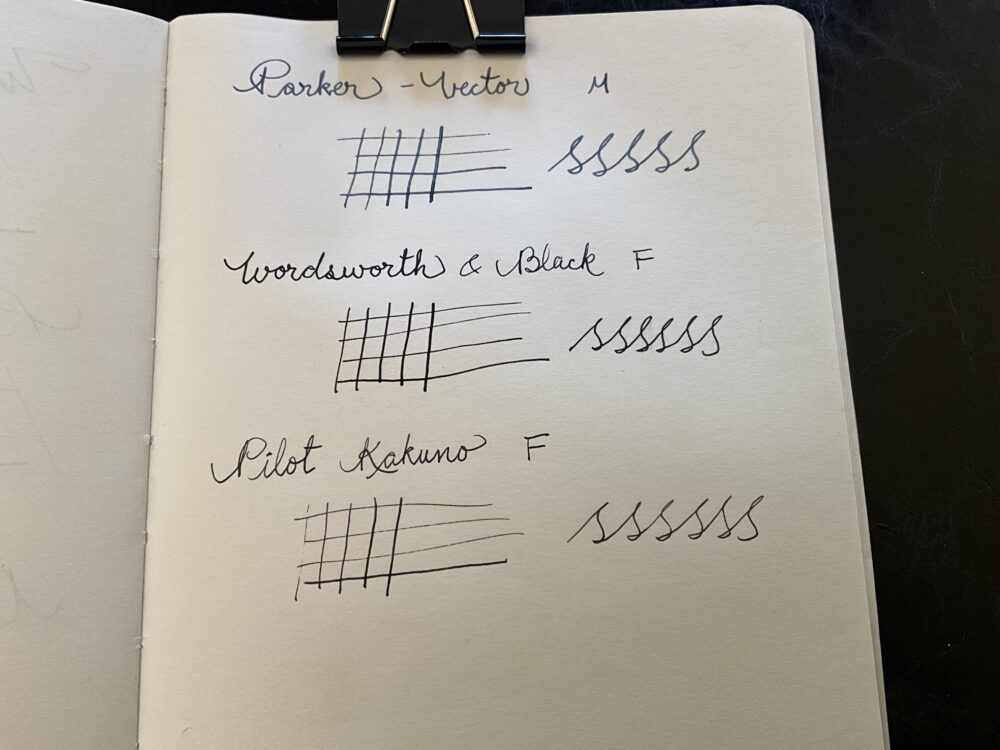 Parker - Vector M
sssss
Wordsworth & Black F
ssssss
Pilot Kakuno F
ssssss